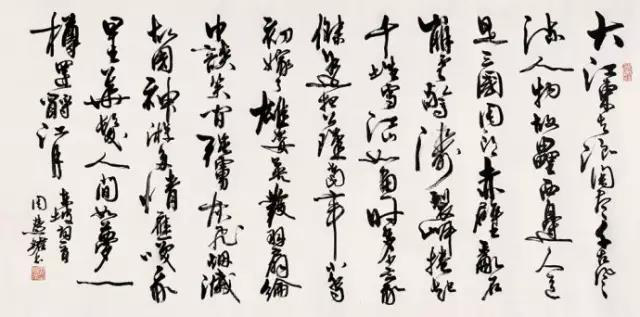 大江東去浪淘盡千古風
流人物故壘西邊人道
是三國周郎赤壁亂石
崩雲驚濤裂岸捲起
千堆雪江山如畫一時多少豪
傑遙想公瑾當年小喬
初嫁了雄姿英發羽扇綸
巾談笑間強虜灰飛烟滅
故國神游多情應笑我
早生華髮人間如夢一
樽還酹江月
東坡詞一首
周慧珺書